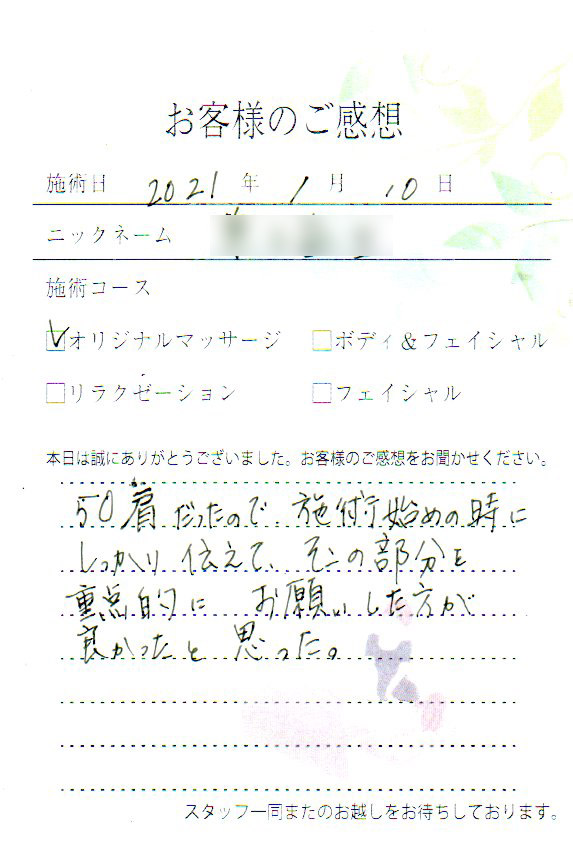 お客様のご感想
施術日 2021年 1月 10日
ニックネーム
施術コース
オリジナルマッサージ ボディ&フェイシャル
リラクゼーション フェイシャル
本日は誠にありがとうございました。お客様のご感想をお聞かせください。
50肩だったので、施術始めの時に
しっかり伝えて、そこの部分を
重点的に お願いした方が
良かったと思った。
スタッフ一同またのお越しをお待ちしております。